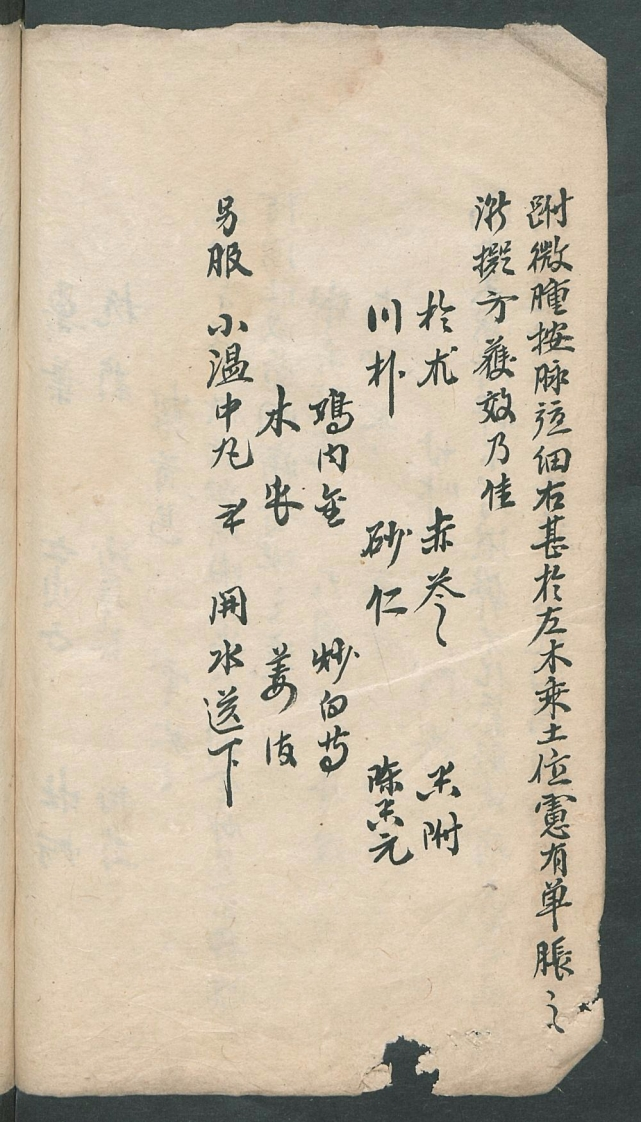 跗微腫按脉弦细右甚於左木乘土位慮有单脹之
漸擬方獲效乃佳
於朮 赤苓 香附
川朴 砂仁 陈香元
鸡内金 炒白芍
木瓜 姜皮
另服 小温中丸 開水送下